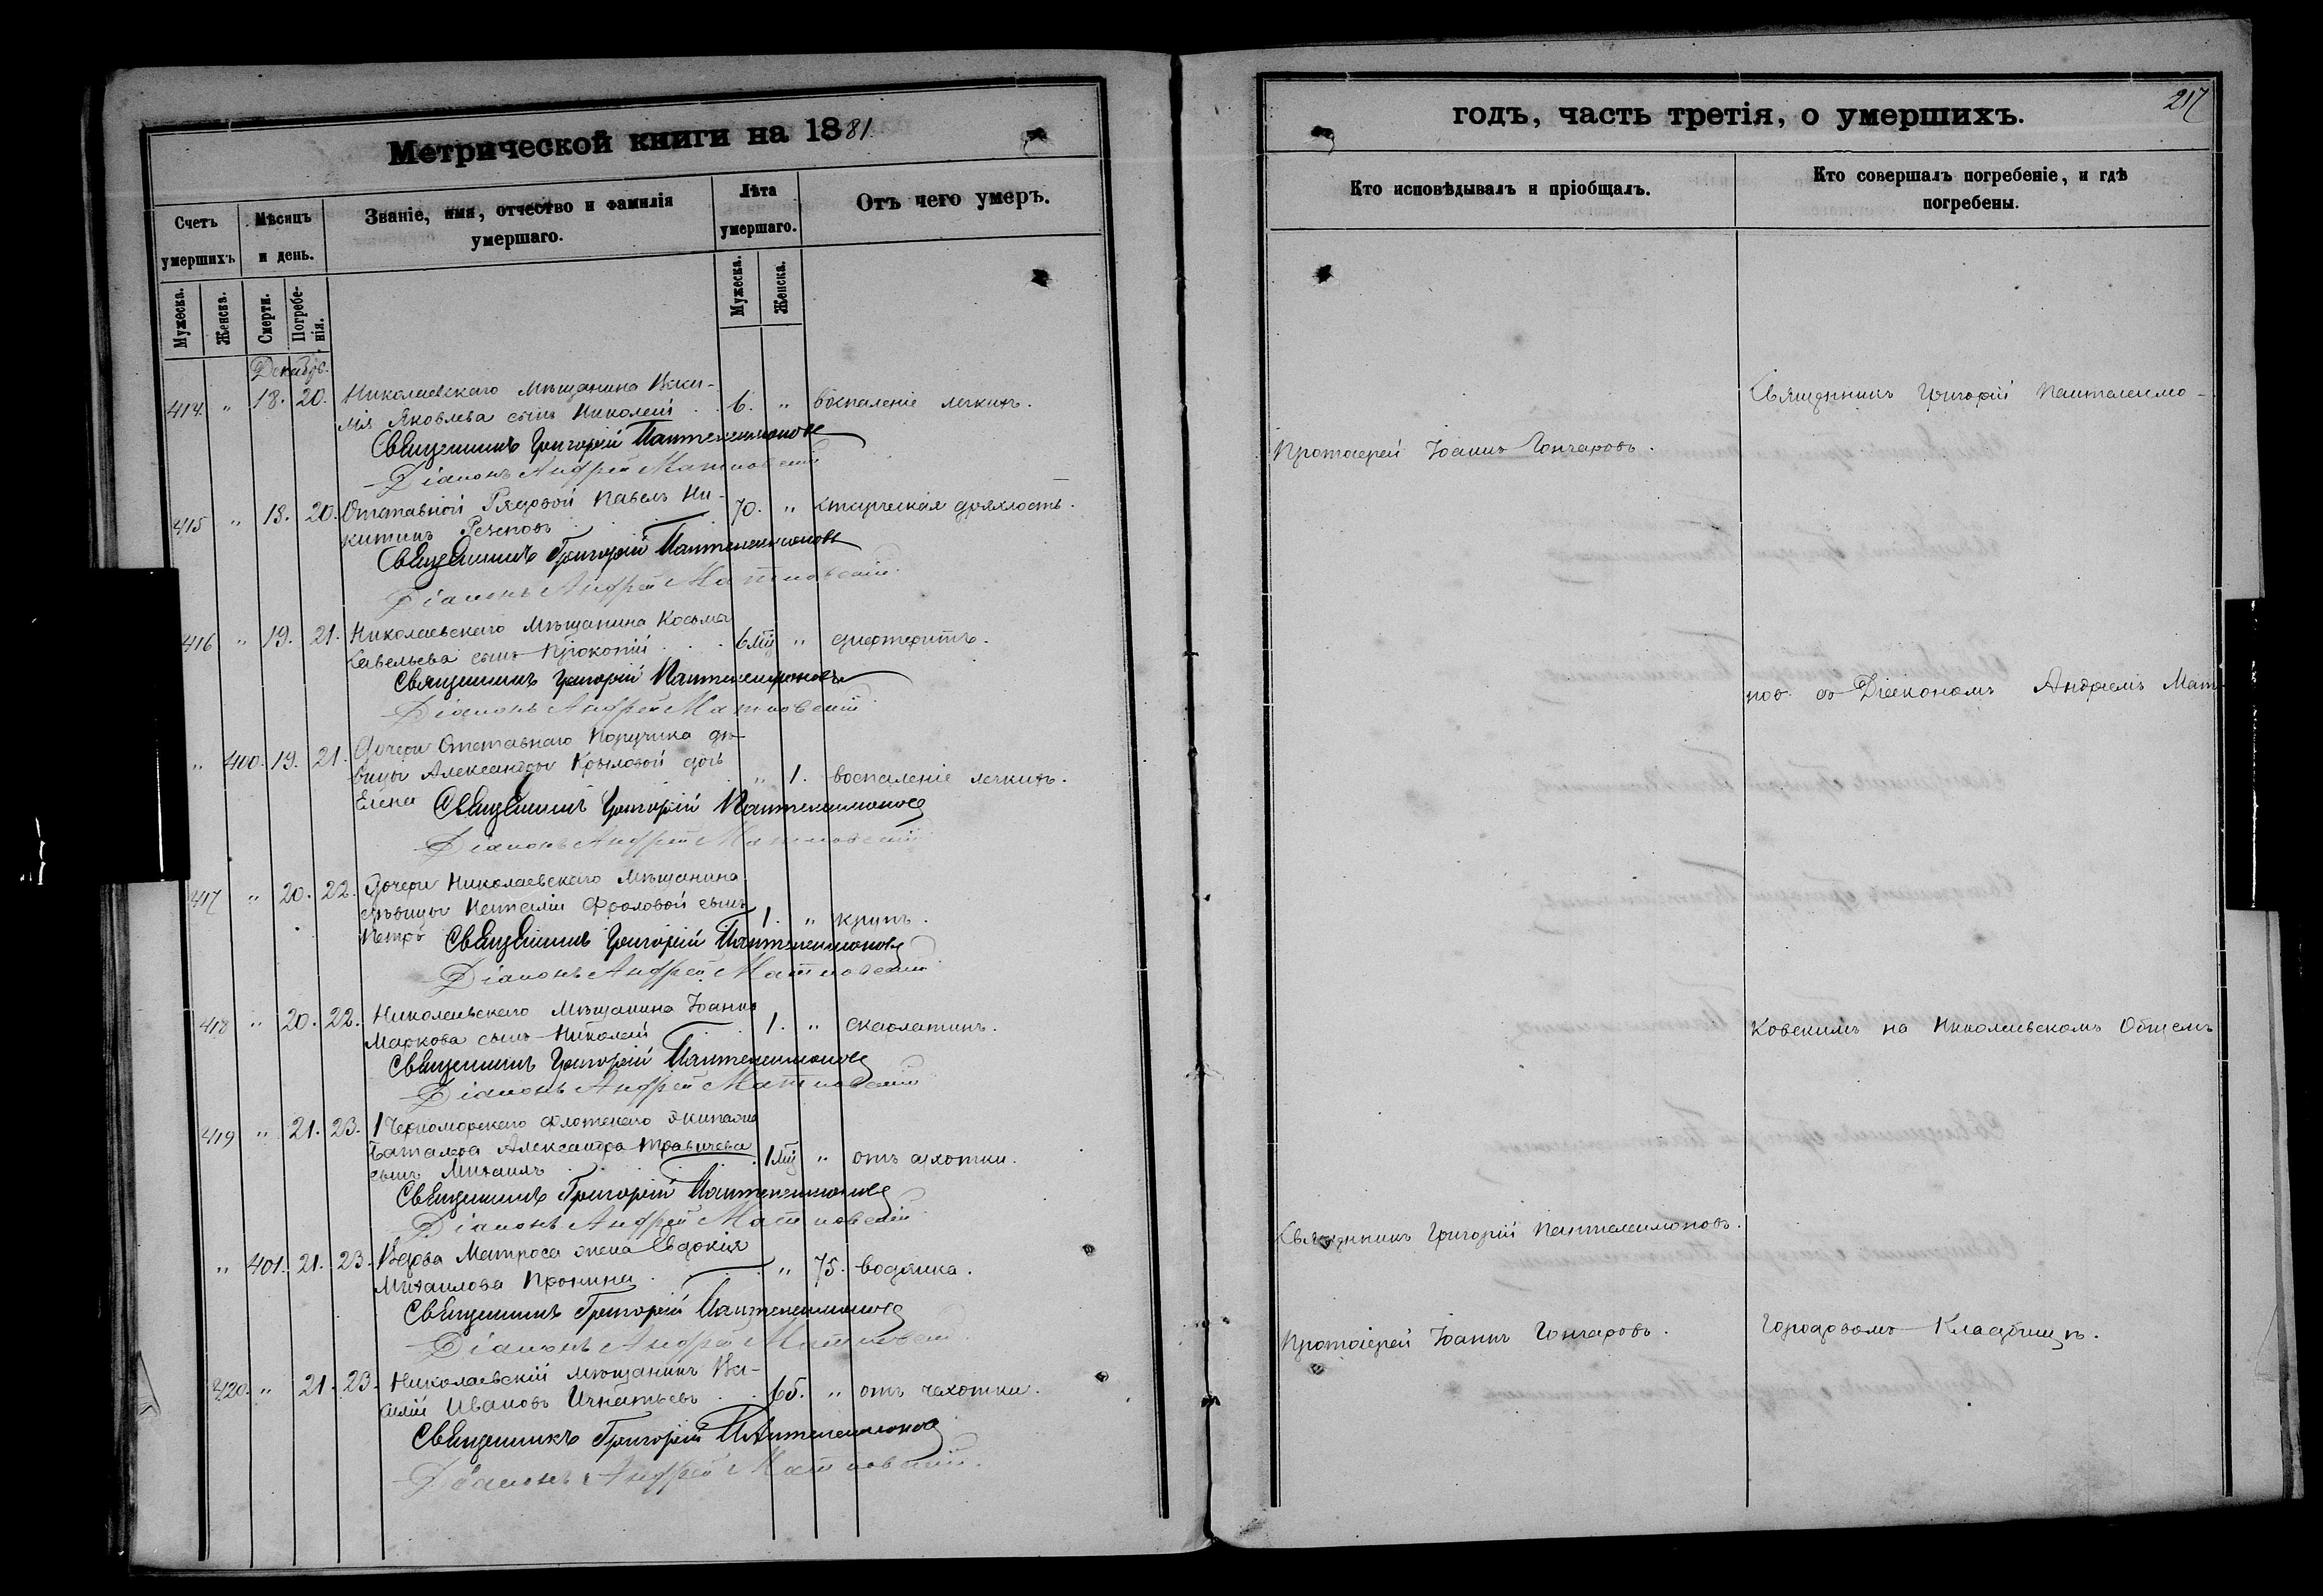 Метрической книги на 1881
Счетъ умершихъ
Мѣсяцъ и день.
Званіе, имя, отчество и фамилія умершаго.
Лѣта умершаго.
Отъ чего умеръ.
Мужеска.
Женска.
Смерти.
Погребенія.
Мужеска.
Женска.
Декабрь.
414. " 18. 20. Николаевскаго Мѣщанина
Яковлева сынъ Николай 6. " воспаленіе легкихъ.
Священникъ Григорій Пантелеимоновъ
Діаконъ Андрей Матковскій
415 " 18. 20. Отставной Рядовой Павелъ Ни-
китинъ 70. " старческая дряхлость.
Священникъ Григорій Пантелеимоновъ
Діаконъ Андрей Матковскій
416 " 19. 21. Николаевскаго Мѣщанина Косьма
Савельева сынъ Прокопій 6 мц " дифтеритъ.
Священникъ Григорій Пантелеимоновъ
Діаконъ Андрей Матковскій
" 400. 19. 21. Дочери Отставнаго Поручика дѣ-
вицы Александры Крыловой дочь " 1. воспаленіе легкихъ.
Елена Священникъ Григорій Пантелеимоновъ
Діаконъ Андрей Матковскій
417 " 20. 22. Дочери Николаевскаго Мѣщанина
дѣвицы Наталіи Фроловой сынъ 1. " крупъ.
Петръ Священникъ Григорій Пантелеимоновъ
Діаконъ Андрей Матковскій
418 " 20. 22. Николаевскаго Мѣщанина Іоанна
Маркова сынъ Николай 1. " скарлатинъ.
Священникъ Григорій Пантелеимоновъ
Діаконъ Андрей Матковскій
419 " 21. 23. 1 Черноморскаго флотскаго экипажа
Александра
сынъ Михаилъ 1 мц " отъ сухотки.
Священникъ Григорій Пантелеимоновъ
Діаконъ Андрей Матковскій
" 401. 21. 23. Вдова Матроса жена Евдокія
Михаилова Пронина " 75. водянка.
Священникъ Григорій Пантелеимоновъ
Діаконъ Андрей Матковскій
420. " 21. 23. Николаевскій мѣщанинъ Ва-
силій Ивановъ Игнатьевъ 65. " отъ чахотки.
Священникъ Григорій Пантелеимоновъ
Діаконъ Андрей Матковскій
217
годъ, часть третія, о умершихъ.
Кто исповѣдывалъ и пріобщалъ.
Кто совершалъ погребеніе, и гдѣ погребены.
Священникъ Григорій Пантелеимо-
Протоіерей Іоаннъ Гончаровъ.
новъ со Діакономъ Андреемъ Мат-
ковскимъ на Николаевскомъ Общемъ
Священникъ Григорій Пантелеимоновъ.
Протоіерей Іоаннъ Гончаровъ.
Городовомъ Кладбищѣ.